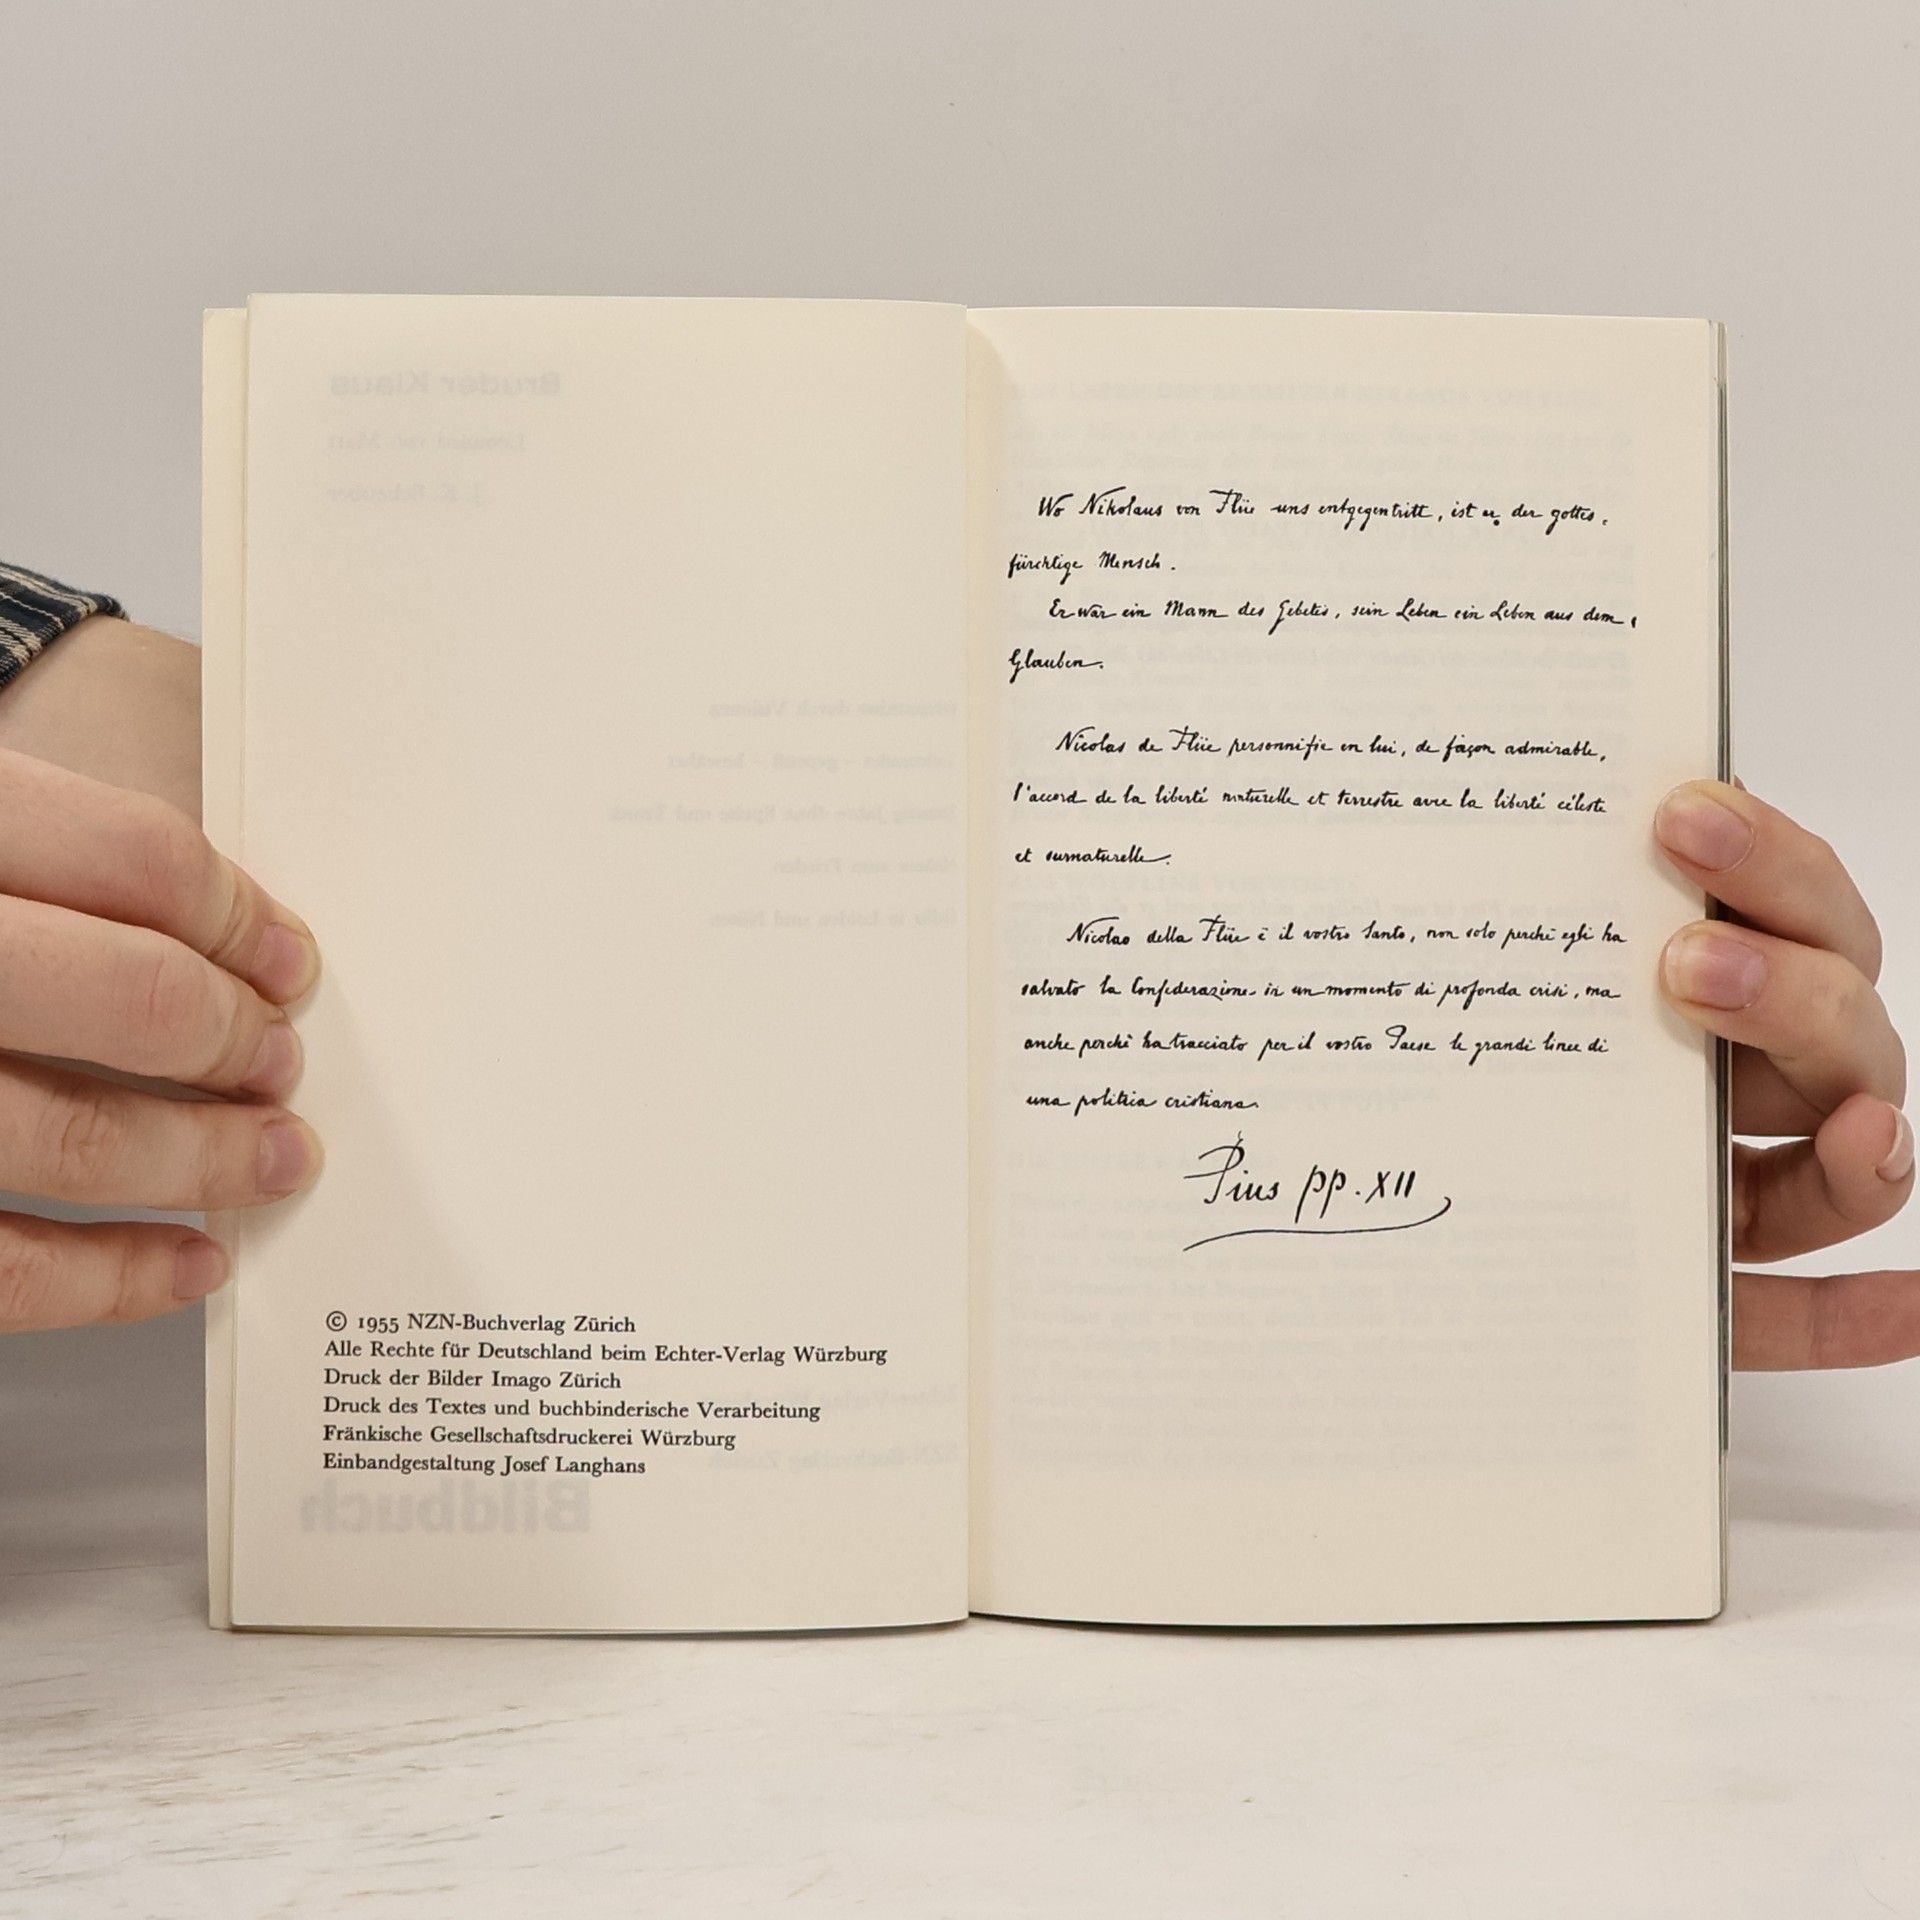 © 1955 NZN-Buchverlag Zürich
Alle Rechte für Deutschland beim Echter-Verlag Würzburg
Druck der Bilder Imago Zürich
Druck des Textes und buchbinderische Verarbeitung
Fränkische Gesellschaftsdruckerei Würzburg
Einbandgestaltung Josef Langhans
Wo Nikolaus von Flüe uns entgegentritt, ist er der gottes-
fürchtige Mensch.
Er war ein Mann des Gebetes, sein Leben ein Leben aus dem
Glauben.
Nicolas de Flüe personnifie en lui, de façon admirable,
l'accord de la liberté naturelle et terrestre avec la liberté céleste
et surnaturelle.
Nicolao della Flüe è il vostro Santo, non solo perchè egli ha
salvato la Confederazione in un momento di profonda crisi, ma
anche perchè ha tracciato per il vostro Paese le grandi linee di
una politica cristiana.
Pius pp. XII